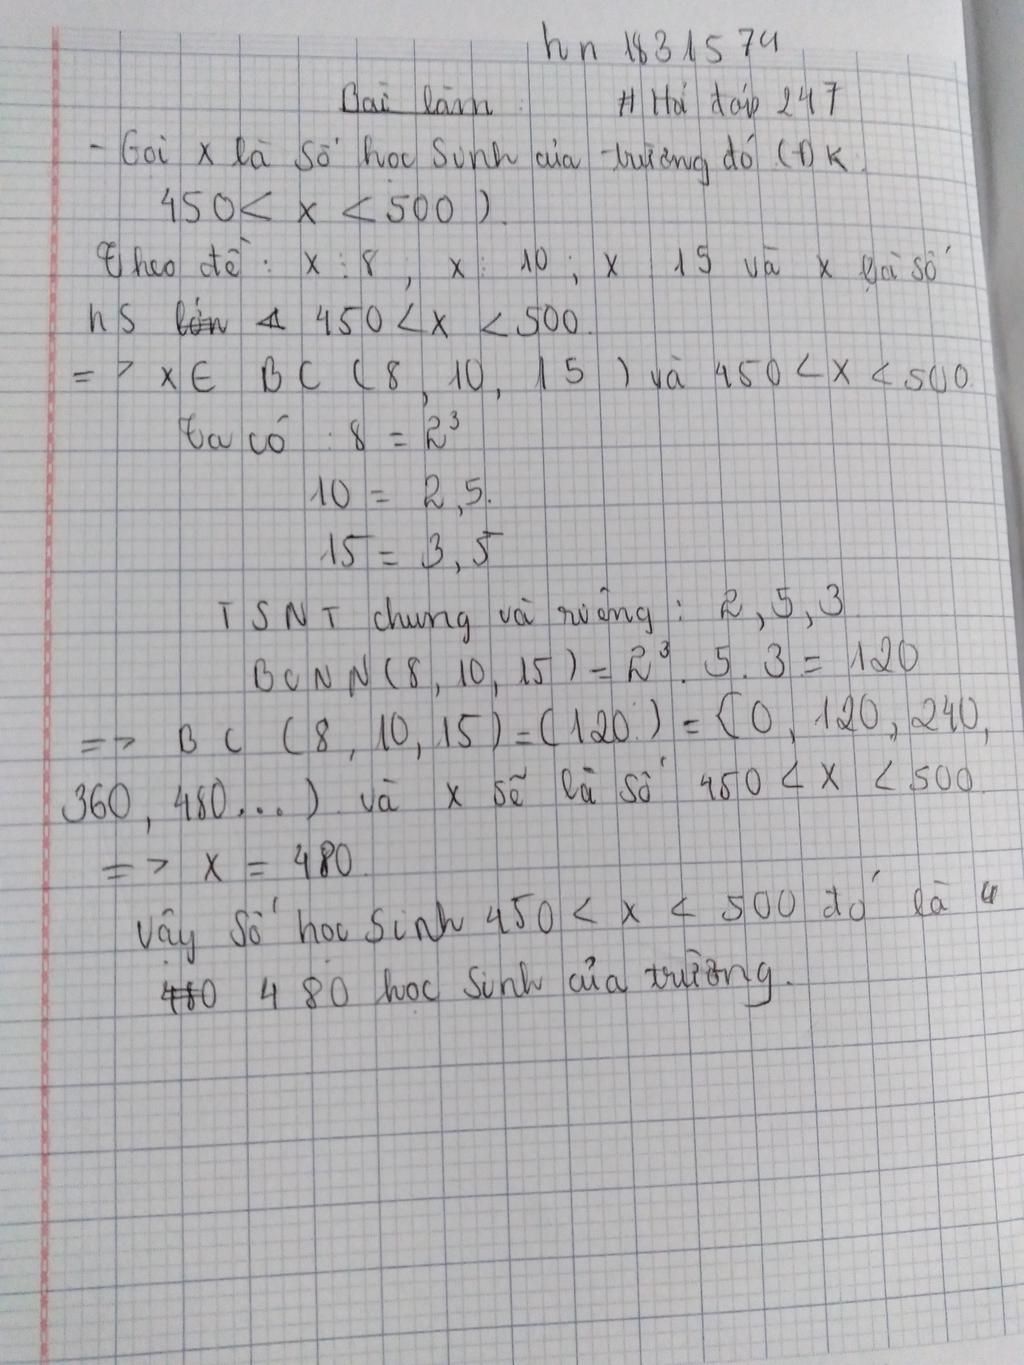 hn 1831574
Bài làm # Hỏi đáp 247
- Gọi x là số học sinh của trường đó (ĐK
450 < x < 500).
Theo đề: x ⋮ 8, x ⋮ 10; x 15 và x là số
hS lớn 450 < x < 500.
=> x ∈ BC (8, 10, 15) và 450 < x < 500
Ta có : 8 = 2³
10 = 2,5.
15 = 3,5
TSNT chung và riêng: 2, 5, 3
BCNN (8, 10, 15) = 2³. 5. 3 = 120
=> BC (8, 10, 15) = (120) = {0, 120, 240,
360, 480...} và x sẽ là số 450 < x < 500
=> x = 480
Vậy số học sinh 450 < x < 500 đó là 4
480 480 học sinh của trường.